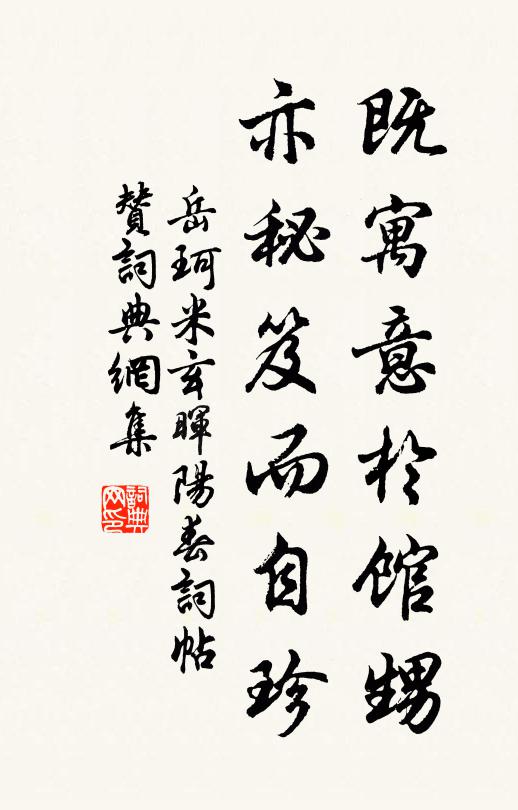 既寓意於館甥
亦秘笈而自珍
岳珂米玄暉陽春詞帖
贊詞典網集
詞典
网印